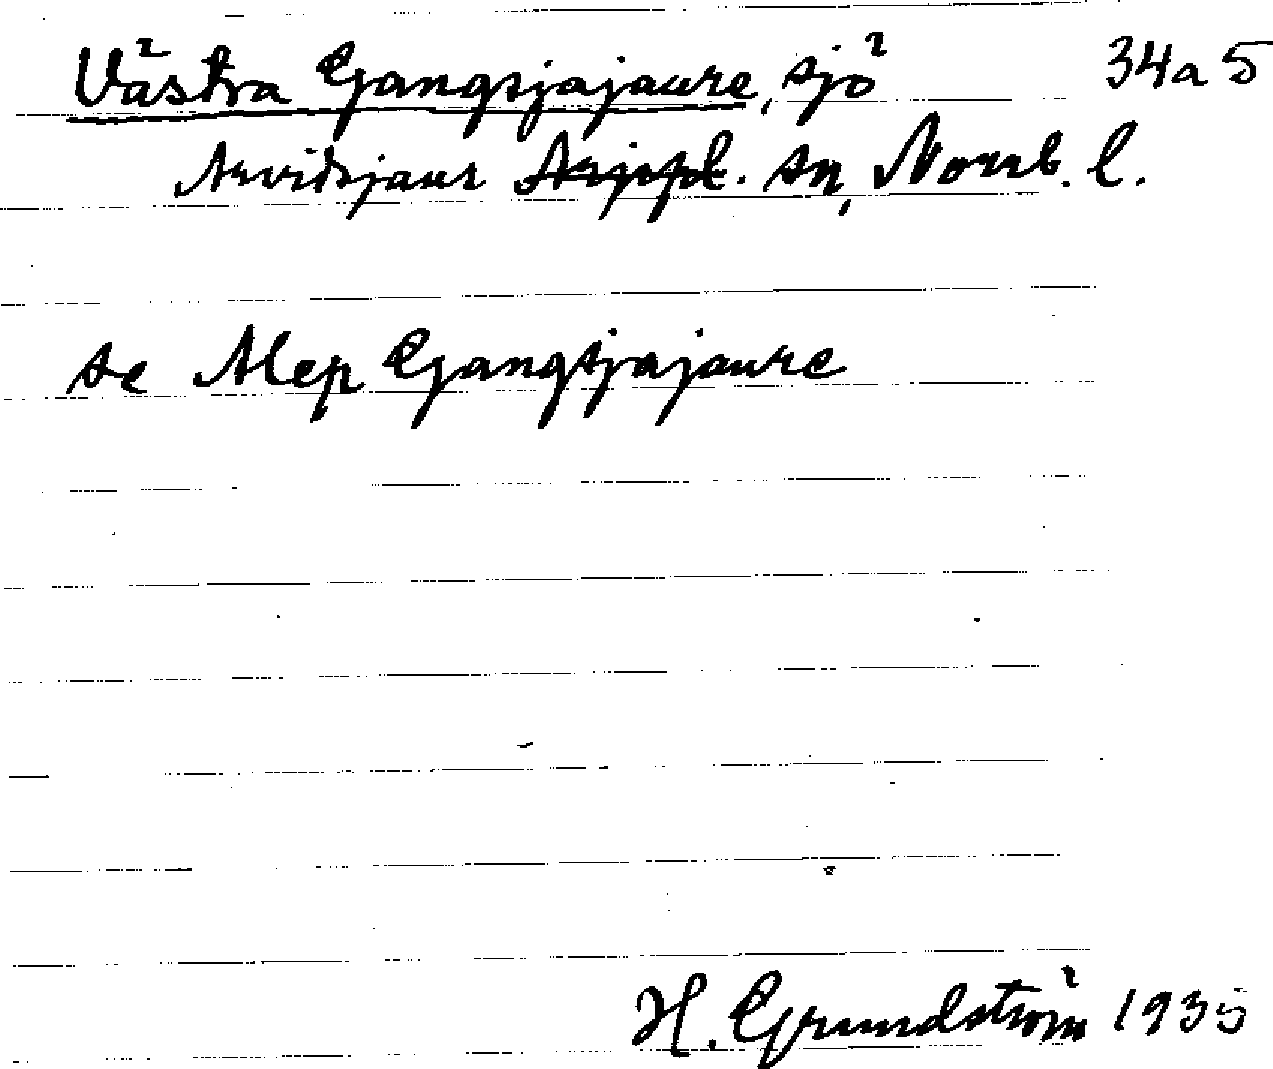 Västra Gangsjajaure, sjö 34a5
Arvidsjaur Arjepl. sn, Norrb. l.
se Alep Gangsjajaure
H. Grundström 1935